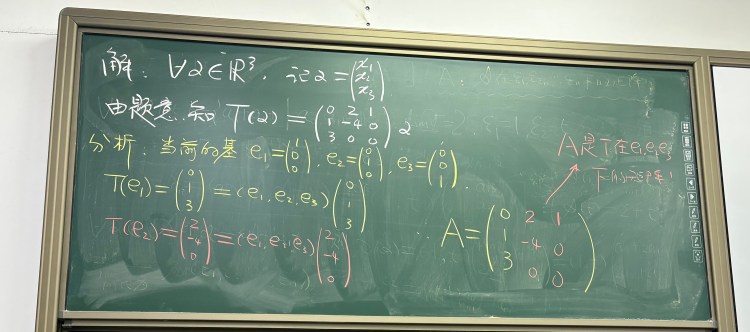 解: ∀α∈ℝ³, 记α = (x₁ x₂ x₃)
由题意知 T(α) = (0 2 1; 1 -4 0; 3 0 0) α
分析: 当前的基 e₁=(1 0 0), e₂=(0 1 0), e₃=(0 0 1).
T(e₁) = (0 1 3) = (e₁, e₂, e₃)(0 1 3)
T(e₂) = (2 -4 0) = (e₁, e₂, e₃)(2 -4 0)
A = (0 2 1; 1 -4 0; 3 0 0)
A是T在e₁e₂e₃
下的